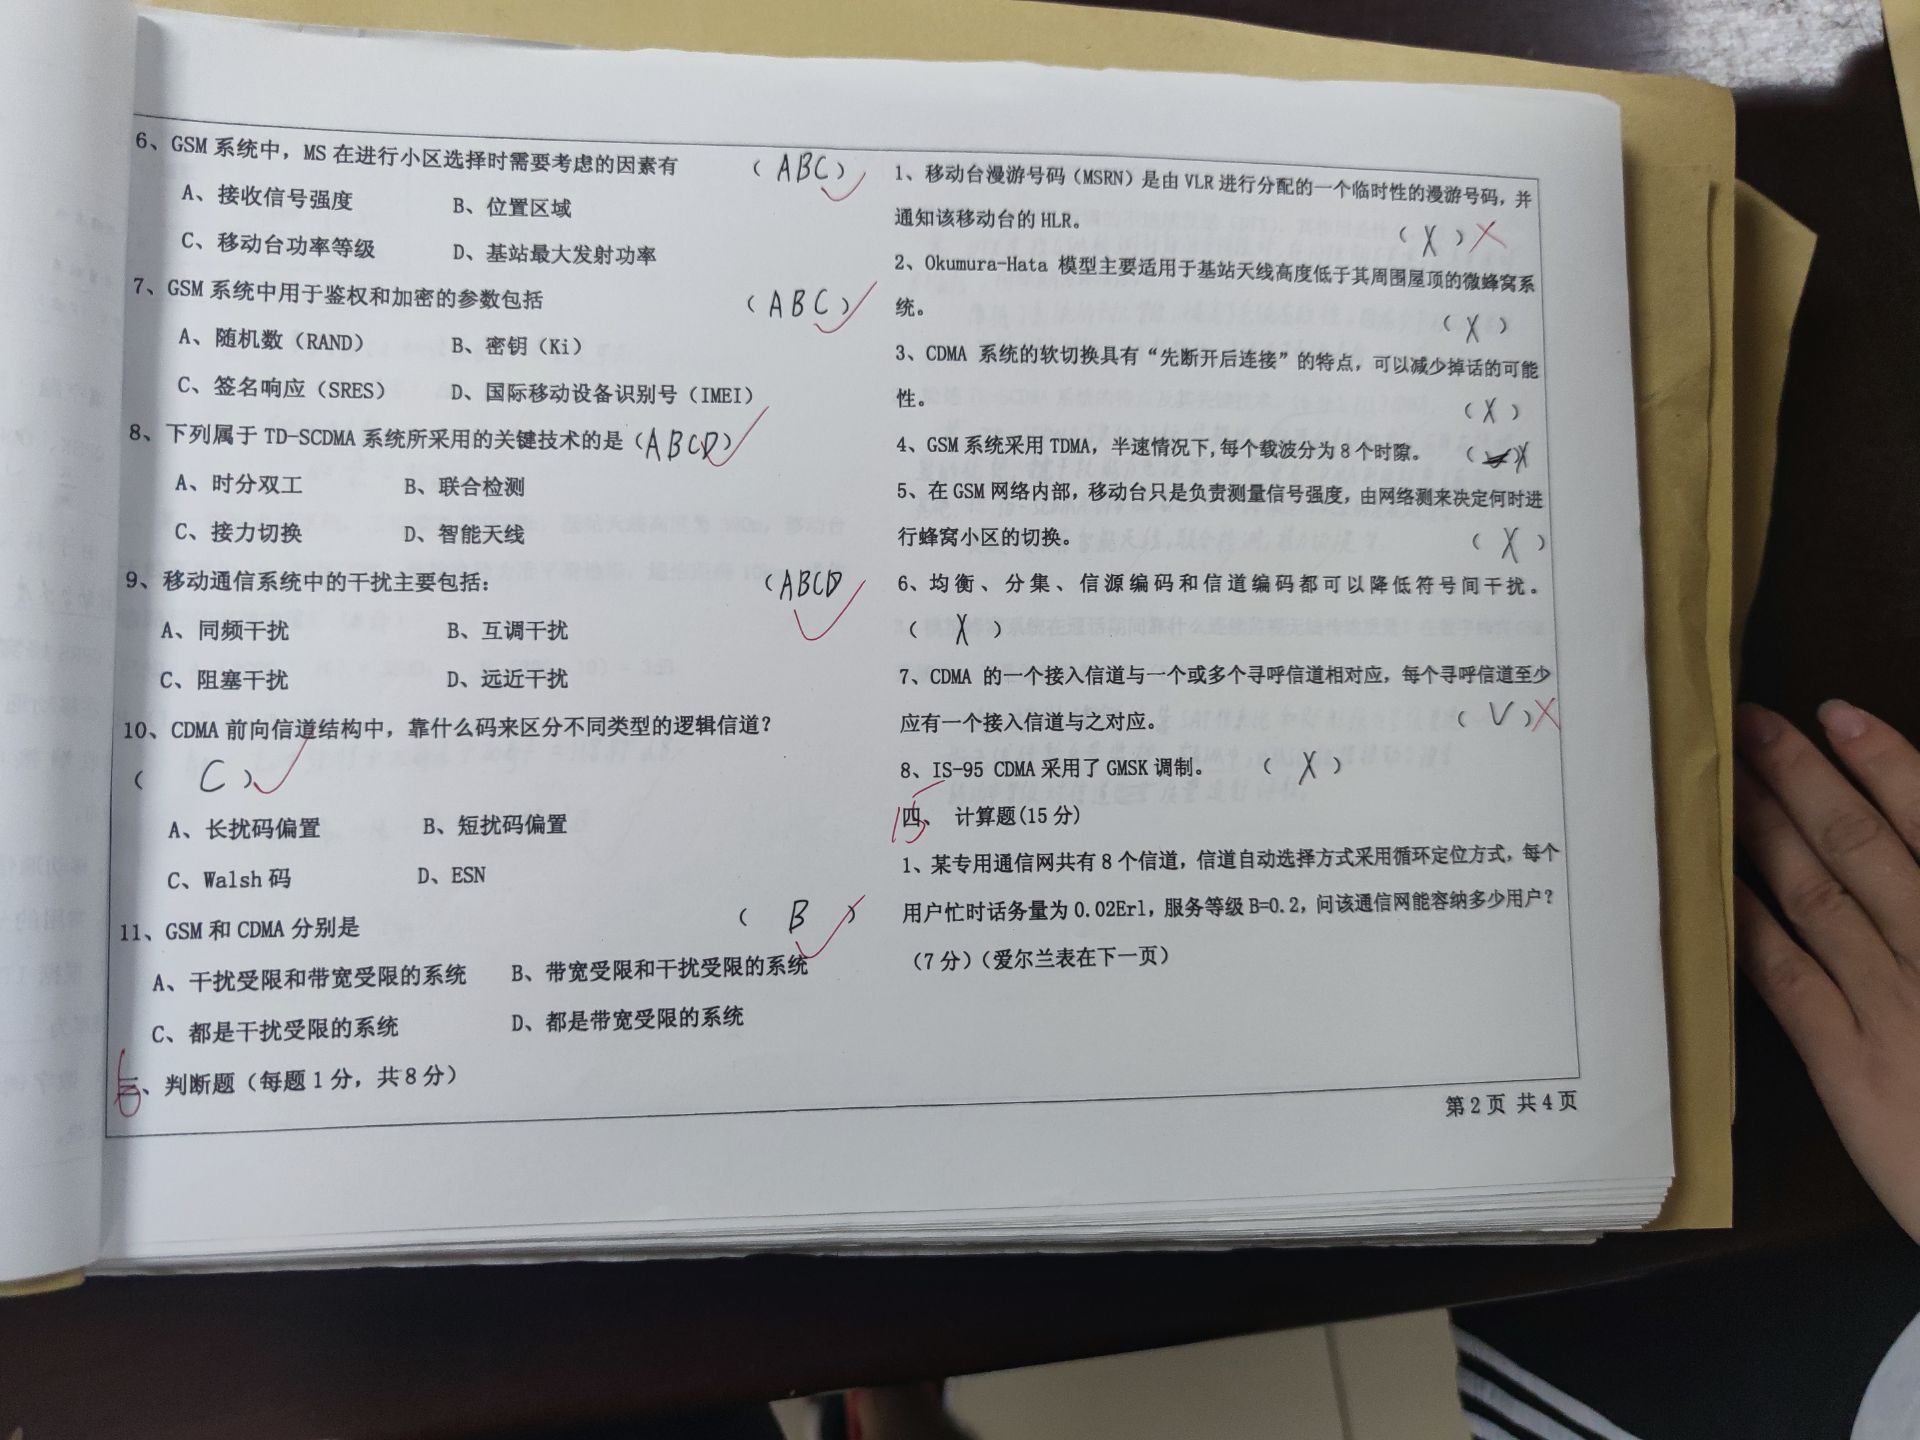 6、GSM 系统中，MS 在进行小区选择时需要考虑的因素有 （ ABC ）
A、接收信号强度 B、位置区域
C、移动台功率等级 D、基站最大发射功率
7、GSM 系统中用于鉴权和加密的参数包括 （ ABC ）
A、随机数（RAND） B、密钥（Ki）
C、签名响应（SRES） D、国际移动设备识别号（IMEI）
8、下列属于 TD-SCDMA 系统所采用的关键技术的是（ABCD）
A、时分双工 B、联合检测
C、接力切换 D、智能天线
9、移动通信系统中的干扰主要包括： （ABCD
A、同频干扰 B、互调干扰
C、阻塞干扰 D、远近干扰
10、CDMA 前向信道结构中，靠什么码来区分不同类型的逻辑信道？
（ C ）
A、长扰码偏置 B、短扰码偏置
C、Walsh 码 D、ESN
11、GSM 和 CDMA 分别是 （ B ）
A、干扰受限和带宽受限的系统 B、带宽受限和干扰受限的系统
C、都是干扰受限的系统 D、都是带宽受限的系统
6
三、判断题（每题 1 分，共 8 分）
1、移动台漫游号码（MSRN）是由 VLR 进行分配的一个临时性的漫游号码，并
通知该移动台的 HLR。 （ X ）X
2、Okumura-Hata 模型主要适用于基站天线高度低于其周围屋顶的微蜂窝系
统。 （ X ）
3、CDMA 系统的软切换具有“先断开后连接”的特点，可以减少掉话的可能
性。 （ X ）
4、GSM 系统采用 TDMA，半速情况下,每个载波分为 8 个时隙。 （ X）
5、在 GSM 网络内部，移动台只是负责测量信号强度，由网络测来决定何时进
行蜂窝小区的切换。 （ X ）
6、均衡、分集、信源编码和信道编码都可以降低符号间干扰。
（ X ）
7、CDMA 的一个接入信道与一个或多个寻呼信道相对应，每个寻呼信道至少
应有一个接入信道与之对应。 （ V ）X
8、IS-95 CDMA 采用了 GMSK 调制。 （ X ）
15
四、 计算题(15 分)
1、某专用通信网共有 8 个信道，信道自动选择方式采用循环定位方式，每个
用户忙时话务量为 0.02Erl，服务等级 B=0.2，问该通信网能容纳多少用户？
（7 分）（爱尔兰表在下一页）
第 2 页 共 4 页